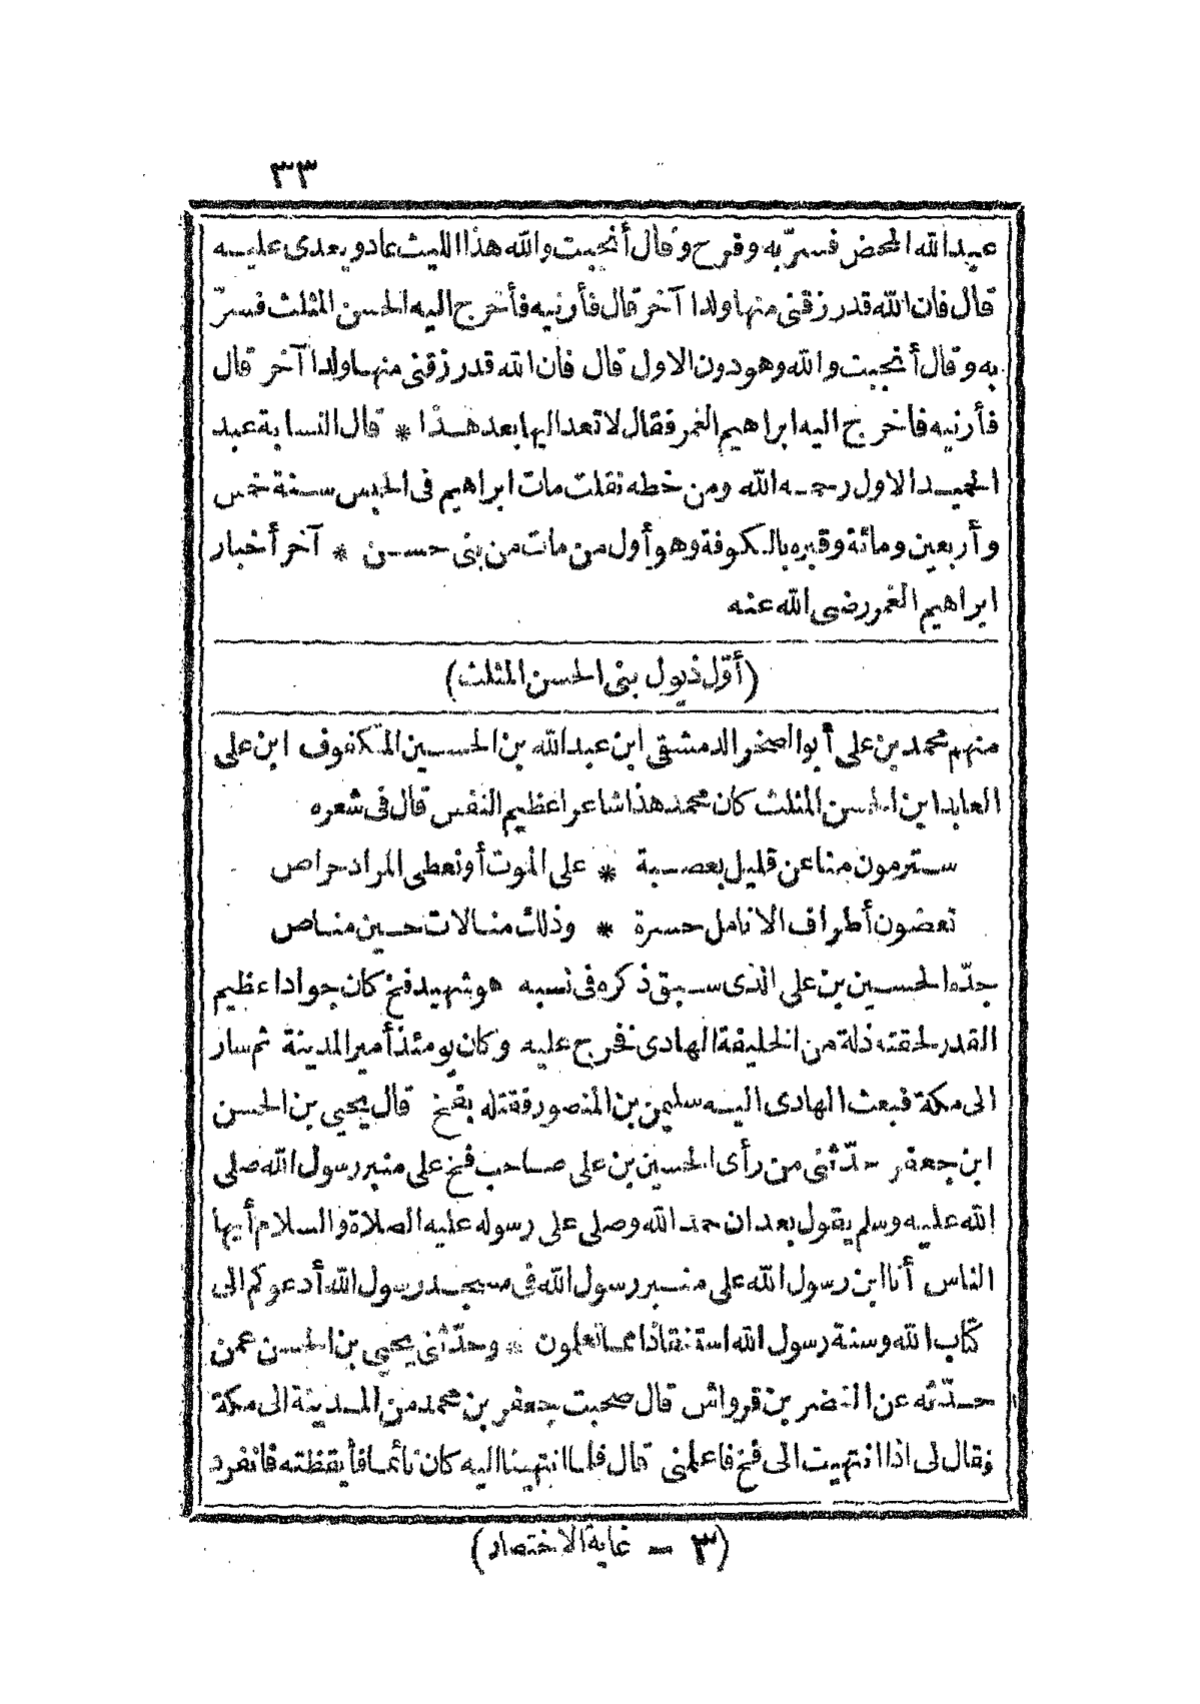 ٣٣
عبدالله المحض فسرّ به وفرح وقال أنجبت والله هذا الليث عاد ويعدى عليه
قال فان الله قد رزقنى منها ولدا آخر قال فأرنيه فأخرج اليه الحسن المثلث فسرّ
به وقال أنجبت والله وهو دون الاول قال فان الله قد رزقنى منها ولدا آخر قال
فأرنيه فاخرج اليه ابراهيم الغمر فقال لا تعد اليها بعد هذا * قال النسابة عبد
الحميد الاول رحمه الله ومن خطه نقلت مات ابراهيم فى الحبس سنة خمس
وأربعين ومائة وقبره بالكوفة وهو أول من مات من بنى حسن * آخر أخبار
ابراهيم الغمر رضى الله عنه
(أوّل ذيول بنى الحسن المثلث)
منهم محمد بن على أبو الصخر الدمشقى ابن عبدالله بن الحسين المكفوف ابن على
العابد ابن الحسن المثلث كان محمد هذا شاعرا عظيم النفس قال فى شعره
سترمون منا عن قليل بعصبة * على الموت أو نعطى المراد حراص
تعضون أطراف الانامل حسرة * وذلك منا لات حين مناص
جدّه الحسين بن على الذى سبق ذكره فى نسبه هو شهيد فخ كان جوادا عظيم
القدر لحقته ذلة من الخليفة الهادى فخرج عليه وكان يومئذ أمير المدينة ثم سار
الى مكة فبعث الهادى اليه سليمن بن المنصور فقتله بفخ قال يحيى بن الحسن
ابن جعفر حدّثنى من رأى الحسين بن على صاحب فخ على منبر رسول الله صلى
الله عليه وسلم يقول بعد ان حمد الله وصلى على رسوله عليه الصلاة والسلام أيها
الناس أنا ابن رسول الله على منبر رسول الله فى مسجد رسول الله أدعوكم الى
كتاب الله وسنة رسول الله استنقاذا مما تعلمون * وحدّثنى يحيى بن الحسن عمن
حدّثه عن النضر بن قرواش قال صحبت جعفر بن محمد من المدينة الى مكة
فقال لى اذا انتهيت الى فخ فاعلمنى قال فلما انتهينا اليه كان نائما فأيقظته فانفرد
(٣ — غاية الاختصار)